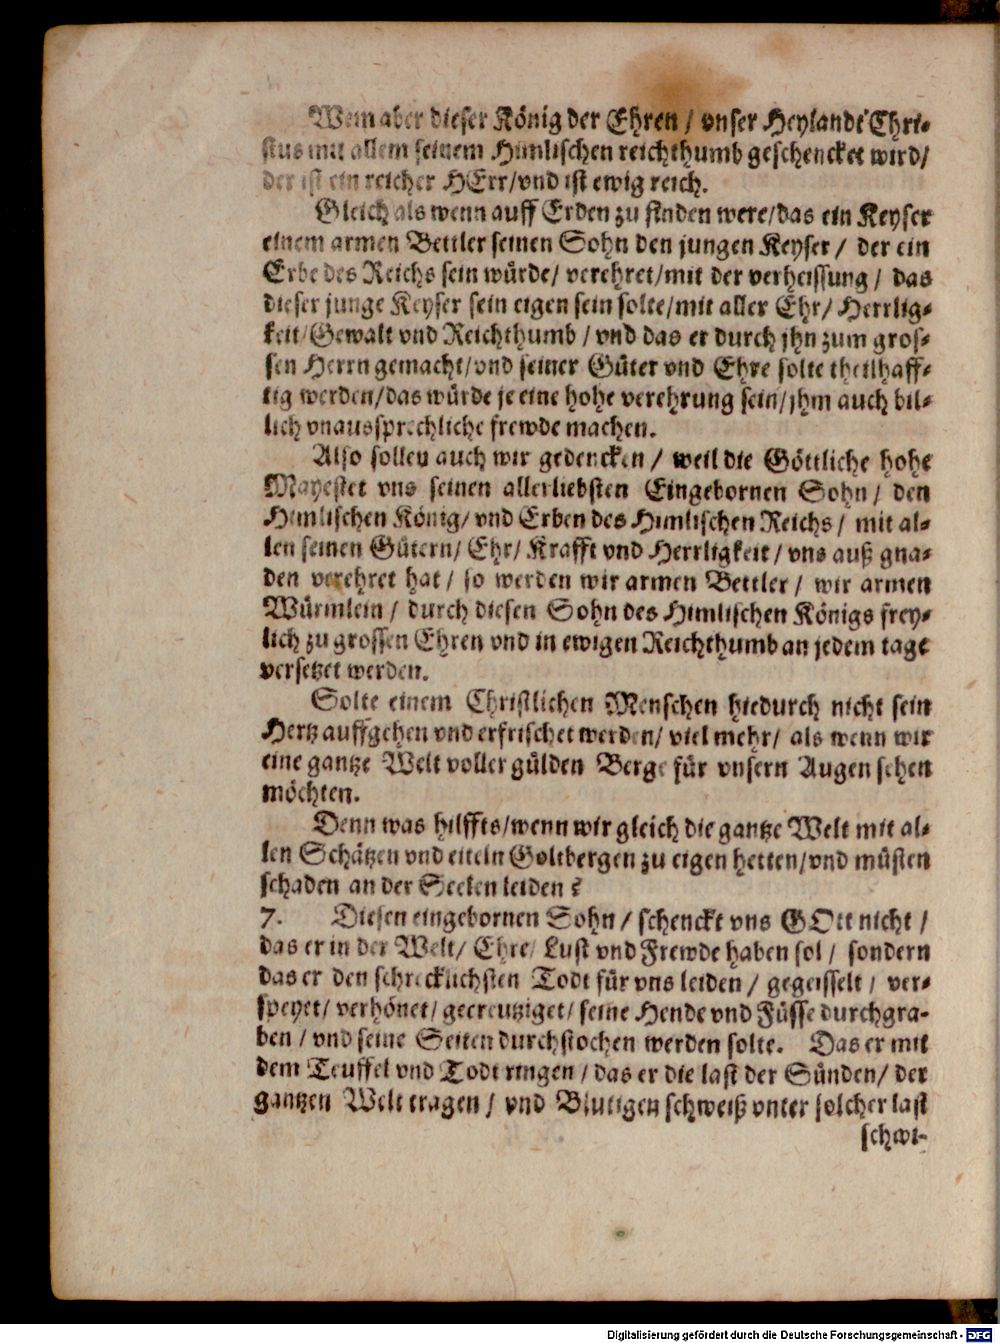 Wem aber dieser König der Ehren / vnser Heylandt Chri-
stus mit allem seinem Himlischen reichthumb geschencket wird/
der ist ein reicher HErr/vnd ist ewig reich.
Gleich als wenn auff Erden zu finden were/das ein Keyser
einem armen Bettler seinen Sohn den jungen Keyser / der ein
Erbe des Reichs sein würde/ verehret/mit der verheissung / das
dieser junge Keyser sein eigen sein solte/mit aller Ehr/ Herrlig-
keit/Gewalt vnd Reichthumb / vnd das er durch jhn zum gros-
sen Herrn gemacht/vnd seiner Güter vnd Ehre solte theilhaff-
tig werden/das würde je eine hohe verehrung sein/jhm auch bil-
lich vnaussprechliche frewde machen.
Also sollen auch wir gedencken / weil die Göttliche hohe
Mayestet vns seinen allerliebsten Eingebornen Sohn / den
Himlischen König/ vnd Erben des Himlischen Reichs / mit al-
len seinen Gütern/ Ehr/ Krafft vnd Herrligkeit / vns auß gna-
den verehret hat / so werden wir armen Bettler / wir armen
Würmlein / durch diesen Sohn des Himlischen Königs frey-
lich zu grossen Ehren vnd in ewigen Reichthumb an jedem tage
versetzet werden.
Solte einem Christlichen Menschen hiedurch nicht sein
Hertz auffgehen vnd erfrischet werden/ viel mehr/ als wenn wir
eine gantze Welt voller gülden Berge für vnsern Augen sehen
möchten.
Denn was hilffts/wenn wir gleich die gantze Welt mit al-
len Schätzen vnd eiteln Goltbergen zu eigen hetten/vnd müsten
schaden an der Seelen leiden?
7. Diesen eingebornen Sohn / schenckt vns GOtt nicht /
das er in der Welt/ Ehre/ Lust vnd Frewde haben sol / sondern
das er den schrecklichsten Todt für vns leiden / gegeisselt / ver-
speyet/ verhönet/ gecreutziget/ seine Hende vnd Füsse durchgra-
ben / vnd seine Seiten durchstochen werden solte. Das er mit
dem Teuffel vnd Todt ringen / das er die last der Sünden/ der
gantzen Welt tragen / vnd Blutigen schweiß vnter solcher last
schwi-
Digitalisierung gefördert durch die Deutsche Forschungsgemeinschaft - DFG